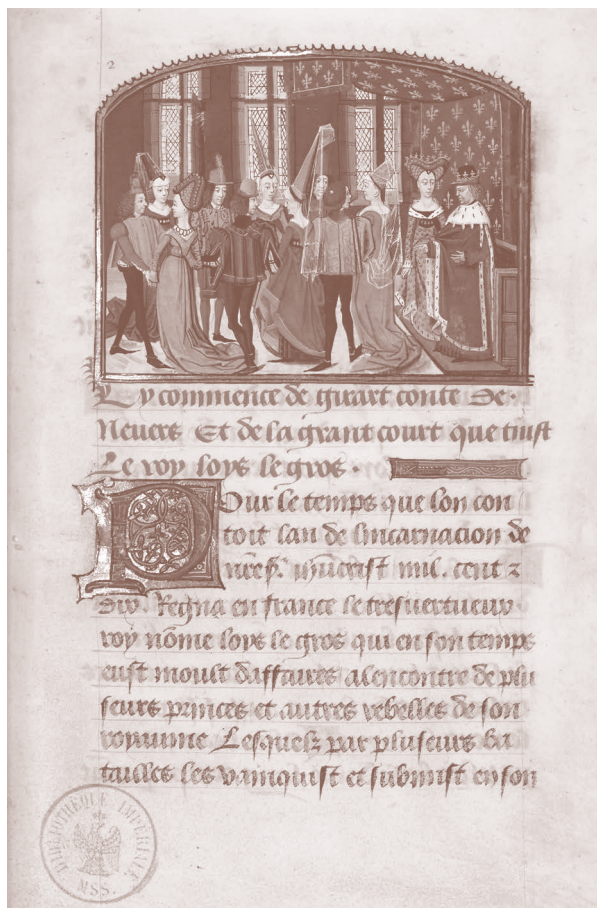 2
Cy commence de girart conte de
Nevers Et de la grant court que tinst
Le roy loys le gros .
Pour le temps que lon con
toit lan de lincarnacion de
nr̃e sr̃. ihũcrist mil. cent z
dix. Regna en france le tresvertueux
roy nõme loys le gros qui en son temps
eust moult daffaires alencontre de plu
seurs princes et autres rebelles de son
royaume Lesquelz par pluseurs ba
tailles les vainquist et submist en son
BIBLIOTHEQUE IMPERIALE
MSS.